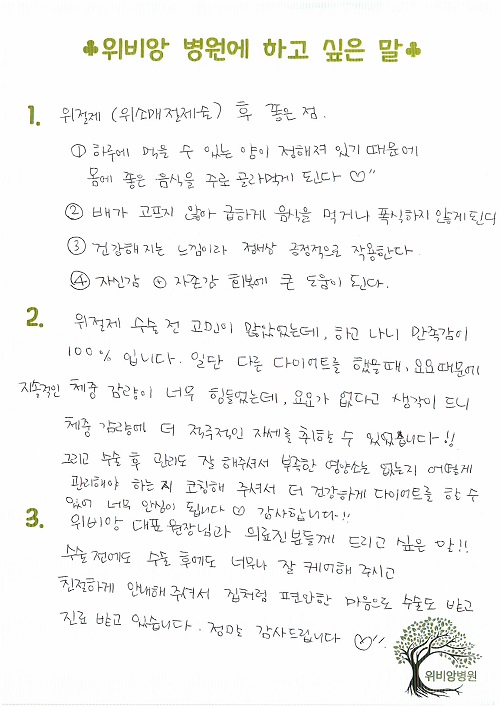 ♣위비앙 병원에 하고 싶은 말♣
1. 위절제 (위소매절제술) 후 좋은 점.
① 하루에 먹을 수 있는 양이 정해져 있기 때문에
몸에 좋은 음식을 주로 골라먹게 된다 ♡"
② 배가 고프지 않아 급하게 음식을 먹거나 폭식하지 않게 된다
③ 건강해지는 느낌이라 정신상 긍정적으로 작용한다.
④ 자신감 + 자존감 회복에 큰 도움이 된다.
2. 위절제 수술 전 고민이 많았었는데, 하고 나니 만족감이
100% 입니다. 일단 다른 다이어트를 했을때, 요요때문에
지속적인 체중 감량이 너무 힘들었는데, 요요가 없다고 생각이 드니
체중 감량에 더 적극적인 자세를 취할 수 있었습니다!!
그리고 수술 후 관리도 잘 해주셔서 부족한 영양소는 없는지 어떻게
관리해야 하는지 코칭해 주셔서 더 건강하게 다이어트를 할 수
있어 너무 안심이 됩니다 ♡ 감사합니다!!
3. 위비앙 대표 원장님과 의료진분들께 드리고 싶은 말!!
수술 전에도 수술 후에도 너무나 잘 케어해 주시고
친절하게 안내해 주셔서 집처럼 편안한 마음으로 수술도 받고
진료 받고 있습니다. 정말 감사드립니다 ♡".
위비앙병원